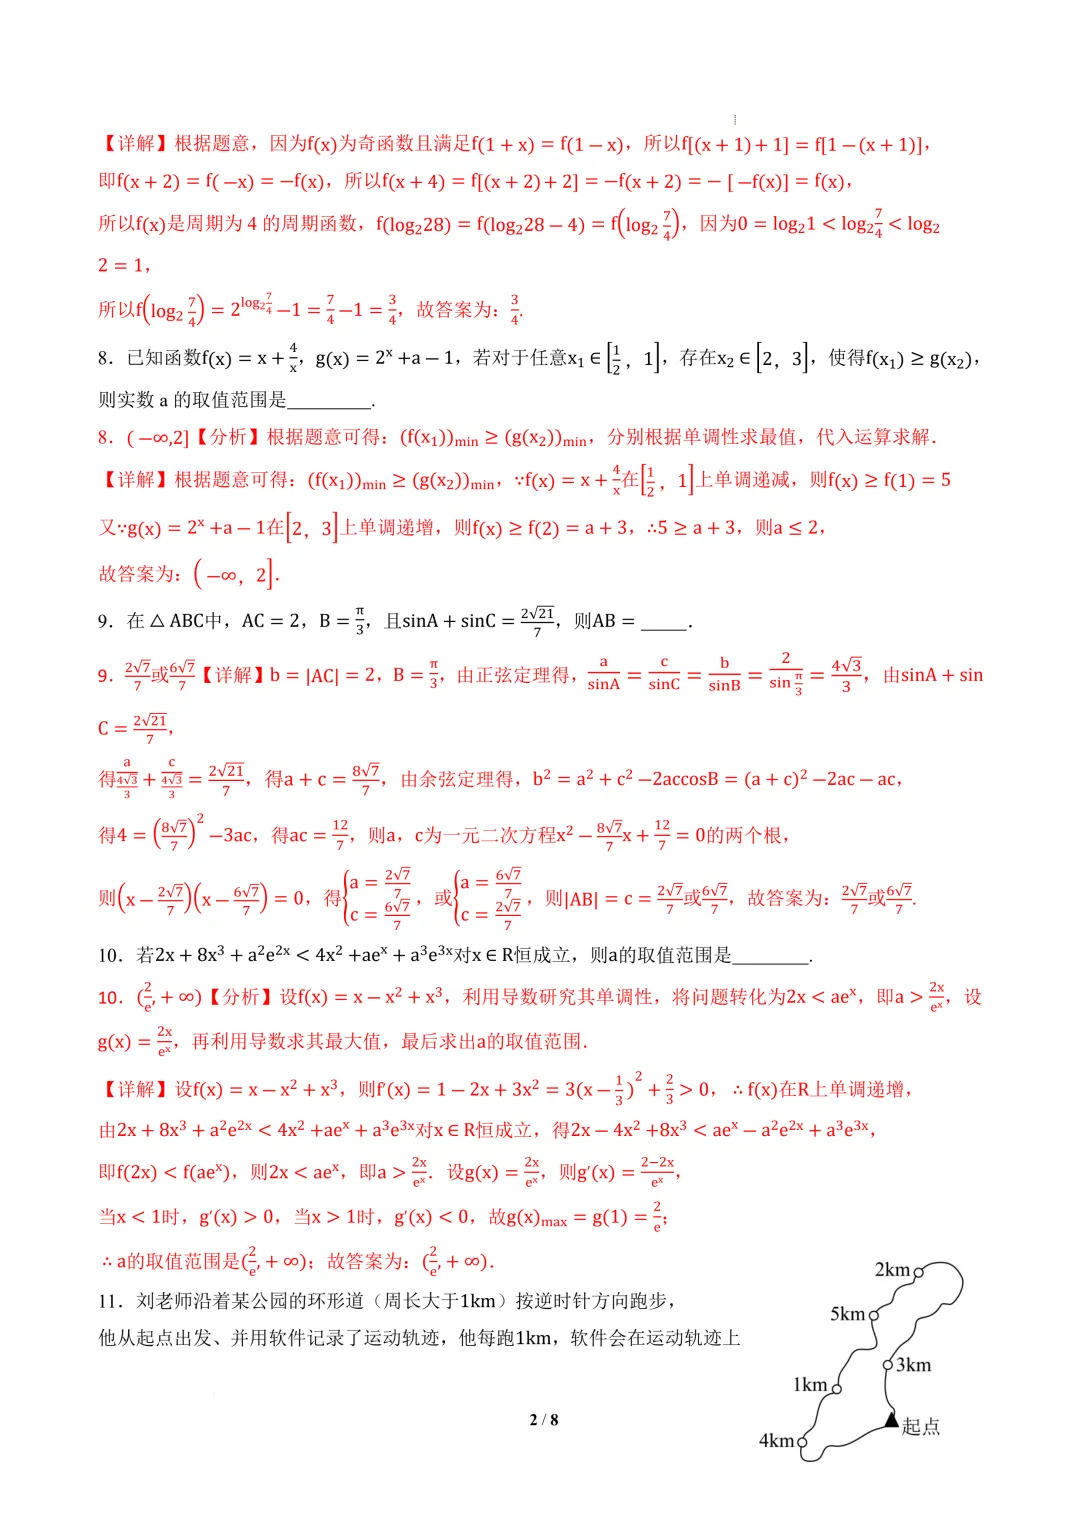 【详解】根据题意，因为f(x)为奇函数且满足f(1 + x) = f(1 − x)，所以f[(x + 1) + 1] = f[1 − (x + 1)]，
即f(x + 2) = f( −x) = −f(x)，所以f(x + 4) = f[(x + 2) + 2] = −f(x + 2) = − [ −f(x)] = f(x)，
所以f(x)是周期为 4 的周期函数，f(log₂28) = f(log₂28 − 4) = f(log₂ 7/4)，因为0 = log₂1 < log₂7/4 < log₂
2 = 1，
所以f(log₂ 7/4) = 2^(log₂7/4) −1 = 7/4 −1 = 3/4，故答案为：3/4.
8．已知函数f(x) = x + 4/x，g(x) = 2ˣ +a − 1，若对于任意x₁ ∈ [1/2，1]，存在x₂ ∈ [2，3]，使得f(x₁) ≥ g(x₂)，
则实数 a 的取值范围是_________.
8．( −∞,2]【分析】根据题意可得：(f(x₁))min ≥ (g(x₂))min，分别根据单调性求最值，代入运算求解．
【详解】根据题意可得：(f(x₁))min ≥ (g(x₂))min，∵f(x) = x + 4/x在[1/2，1]上单调递减，则f(x) ≥ f(1) = 5
又∵g(x) = 2ˣ +a − 1在[2，3]上单调递增，则f(x) ≥ f(2) = a + 3，∴5 ≥ a + 3，则a ≤ 2，
故答案为：( −∞，2]．
9．在 △ ABC中，AC = 2，B = π/3，且sinA + sinC = 2√21/7，则AB = _____．
9．2√7/7或6√7/7【详解】b = |AC| = 2，B = π/3，由正弦定理得，a/sinA = c/sinC = b/sinB = 2/sin π/3 = 4√3/3，由sinA + sin
C = 2√21/7，
得a/(4√3/3) + c/(4√3/3) = 2√21/7，得a + c = 8√7/7，由余弦定理得，b² = a² + c² −2accosB = (a + c)² −2ac − ac，
得4 = (8√7/7)² −3ac，得ac = 12/7，则a，c为一元二次方程x² − 8√7/7x + 12/7 = 0的两个根，
则(x − 2√7/7)(x − 6√7/7) = 0，得{a = 2√7/7 c = 6√7/7，或{a = 6√7/7 c = 2√7/7，则|AB| = c = 2√7/7或6√7/7，故答案为：2√7/7或6√7/7.
10．若2x + 8x³ + a²e²ˣ < 4x² +aeˣ + a³e³ˣ对x ∈ R恒成立，则a的取值范围是________.
10．(2/e, + ∞)【分析】设f(x) = x − x² + x³，利用导数研究其单调性，将问题转化为2x < aeˣ，即a > 2x/eˣ，设
g(x) = 2x/eˣ，再利用导数求其最大值，最后求出a的取值范围．
【详解】设f(x) = x − x² + x³，则f′(x) = 1 − 2x + 3x² = 3(x − 1/3)² + 2/3 > 0，∴ f(x)在R上单调递增，
由2x + 8x³ + a²e²ˣ < 4x² +aeˣ + a³e³ˣ对x ∈ R恒成立，得2x − 4x² +8x³ < aeˣ − a²e²ˣ + a³e³ˣ，
即f(2x) < f(aeˣ)，则2x < aeˣ，即a > 2x/eˣ．设g(x) = 2x/eˣ，则g′(x) = 2−2x/eˣ，
当x < 1时，g′(x) > 0，当x > 1时，g′(x) < 0，故g(x)max = g(1) = 2/e；
∴ a的取值范围是(2/e, + ∞)；故答案为：(2/e, + ∞)．
11．刘老师沿着某公园的环形道（周长大于1km）按逆时针方向跑步，
他从起点出发、并用软件记录了运动轨迹，他每跑1km，软件会在运动轨迹上
2km
5km
3km
1km
起点
4km
2 / 8